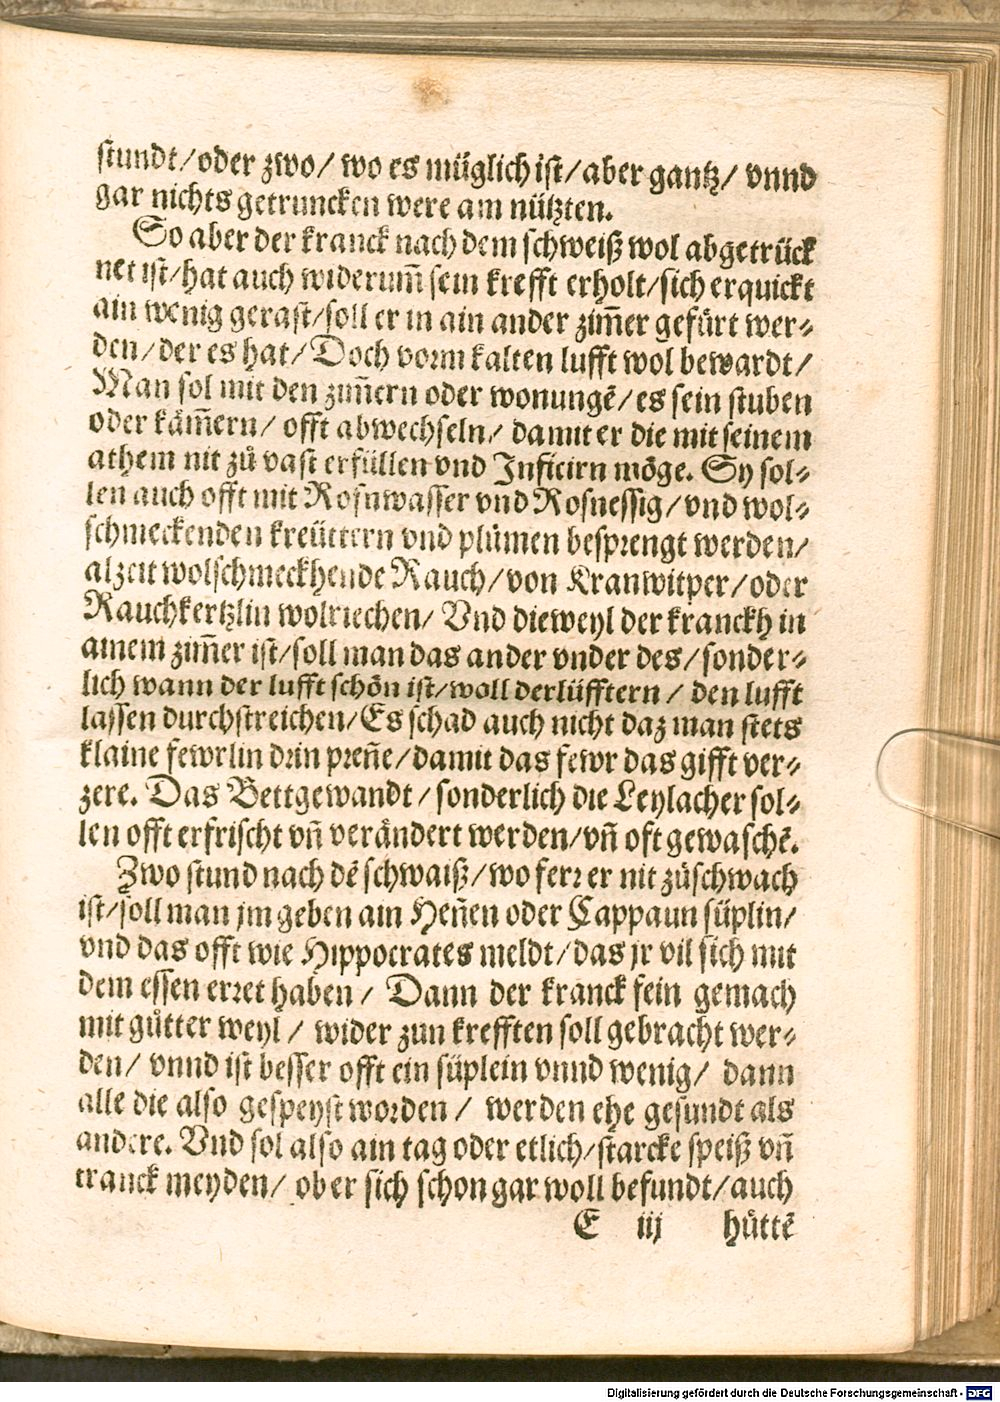 stundt/oder zwo/ wo es müglich ist/aber gantz/ vnnd
gar nichts getruncken were am nützten.
So aber der kranck nach dem schweiß wol abgetrück
net ist/hat auch widerum̃ sein krefft erholt/sich erquickt
ain wenig gerast/soll er in ain ander zim̃er gefürt wer⸗
den/der es hat/Doch vorm kalten lufft wol bewardt/
Man sol mit den zim̃ern oder wonungẽ/es sein stuben
oder käm̃ern/ offt abwechseln/ damit er die mit seinem
athem nit zů vast erfüllen vnd Inficirn möge. Sy sol⸗
len auch offt mit Rosnwasser vnd Rosnessig/vnd wol⸗
schmeckenden kreüttern vnd plůmen besprengt werden/
alzeit wolschmeckhende Rauch/von Kranwitper/oder
Rauchkertzlin wolriechen/ Vnd dieweyl der kranckh in
ainem zim̃er ist/soll man das ander vnder des/sonder⸗
lich wann der lufft schön ist/woll derlüfftern/ den lufft
lassen durchstreichen/Es schad auch nicht daz man stets
klaine fewrlin drin preñe/damit das fewr das gifft ver⸗
zere. Das Bettgewandt/sonderlich die Leylacher sol⸗
len offt erfrischt vñ verändert werden/vñ oft gewaschẽ.
Zwo stund nach dẽ schwaiß/wo ferr er nit zůschwach
ist/soll man jm geben ain Heñen oder Cappaun süplin/
vnd das offt wie Hippocrates meldt/das jr vil sich mit
dem essen erret haben/ Dann der kranck fein gemach
mit gůtter weyl/ wider zun krefften soll gebracht wer⸗
den/ vnnd ist besser offt ein süplein vnnd wenig/ dann
alle die also gespeyst worden/ werden ehe gesundt als
andere. Vnd sol also ain tag oder etlich/starcke speiß vñ
tranck meyden/ ob er sich schon gar woll befundt/auch
E iij hüttẽ
Digitalisierung gefördert durch die Deutsche Forschungsgemeinschaft - DFG